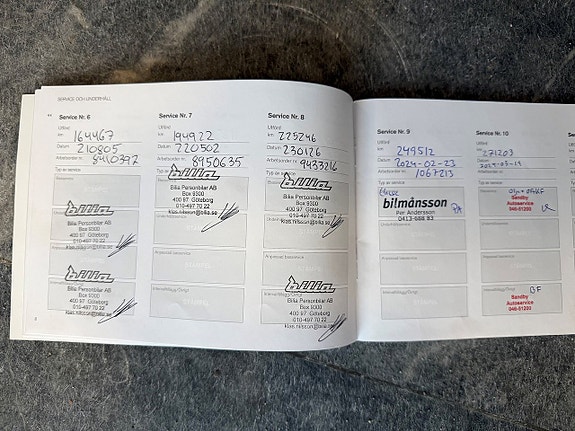 SERVICE OCH UNDERHÅLL
Service Nr. 6
Utförd
km 164467
Datum 210805
Arbetsorder nr. 8410397
Typ av service
billa
Bilia Personbilar AB
Box 9300
400 97 Göteborg
010-497 70 22
klas.nilsson@bilia.se
billa
Bilia Personbilar AB
Box 9300
400 97 Göteborg
010-497 70 22
klas.nilsson@bilia.se
Service Nr. 7
Utförd
km 194922
Datum 220502
Arbetsorder nr. 8950635
Typ av service
billa
Bilia Personbilar AB
Box 9300
400 97 Göteborg
010-497 70 22
klas.nilsson@bilia.se
Service Nr. 8
Utförd
km 225246
Datum 230126
Arbetsorder nr. 9433216
Typ av service
billa
Bilia Personbilar AB
Box 9300
400 97 Göteborg
010-497 70 22
klas.nilsson@bilia.se
billa
Bilia Personbilar AB
Box 9300
400 97 Göteborg
010-497 70 22
klas.nilsson@bilia.se
Service Nr. 9
Utförd
km 249512
Datum 2024-02-23
Arbetsorder nr. 1067213
Typ av service
bilmånsson
Per Andersson
0413-688 83
PA
Service Nr. 10
Utförd
km 271203
Datum
Arbetsorder nr.
Typ av service
Sandby
Autoservice
046-51200
BF
Sandby
Autoservice
046-51200